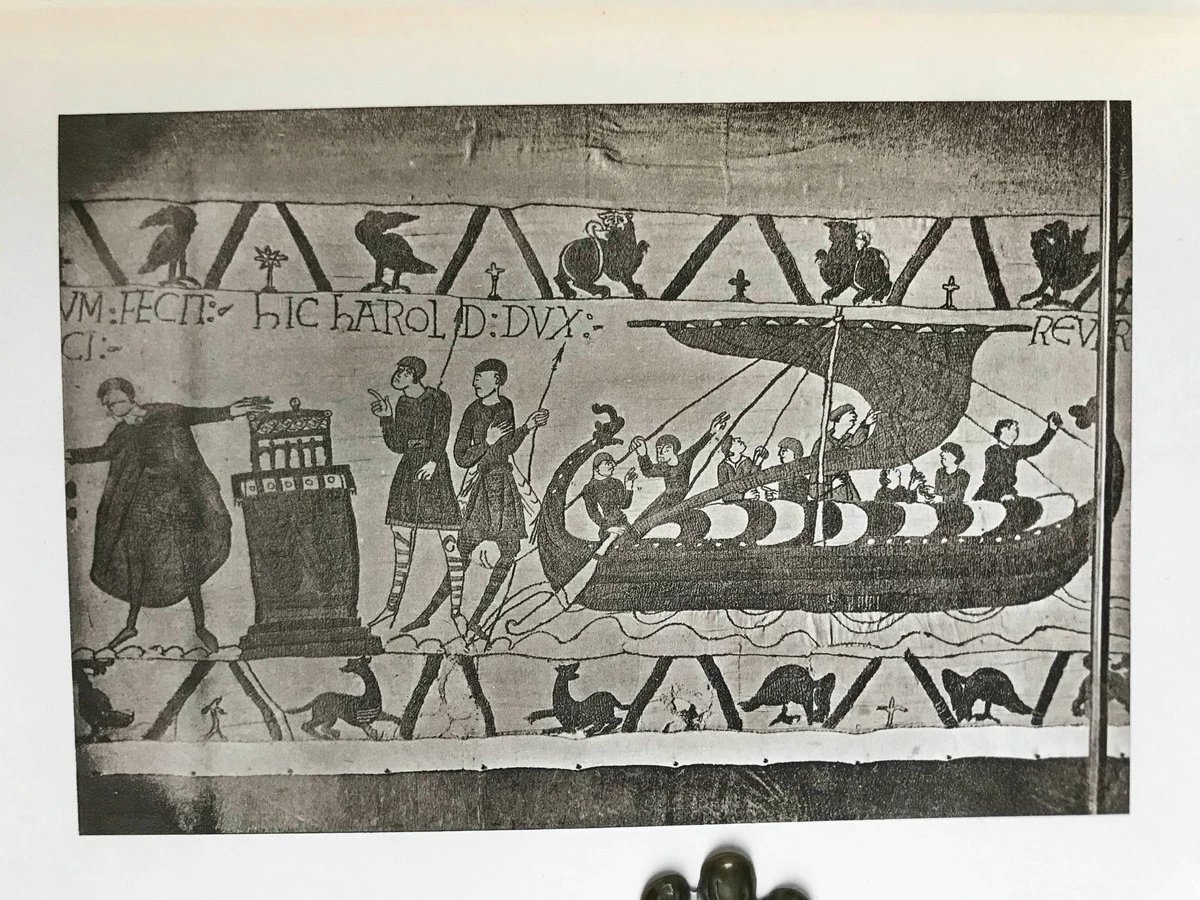 VM:FECIT:- hIC hAROLD:DVX:- REVER
CI:-